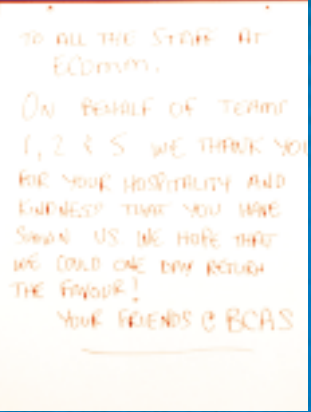 TO ALL THE STAFF AT
ECOMM.
ON BEHALF OF TEAMS
1, 2 & 5 WE THANK YOU
FOR YOUR HOSPITALITY AND
KINDNESS THAT YOU HAVE
SHOWN US WE HOPE THAT
WE COULD ONE DAY RETURN
THE FAVOUR!
YOUR FRIENDS @ BCAS